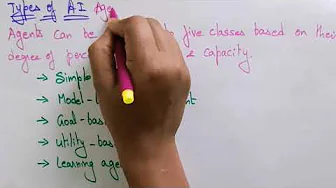 Types of AI Age
Agents can be five classes based on their
degree of & capacity.
→ Simpl
→ Model-
→ Goal-bas
→ Utility-bas
→ Learning age